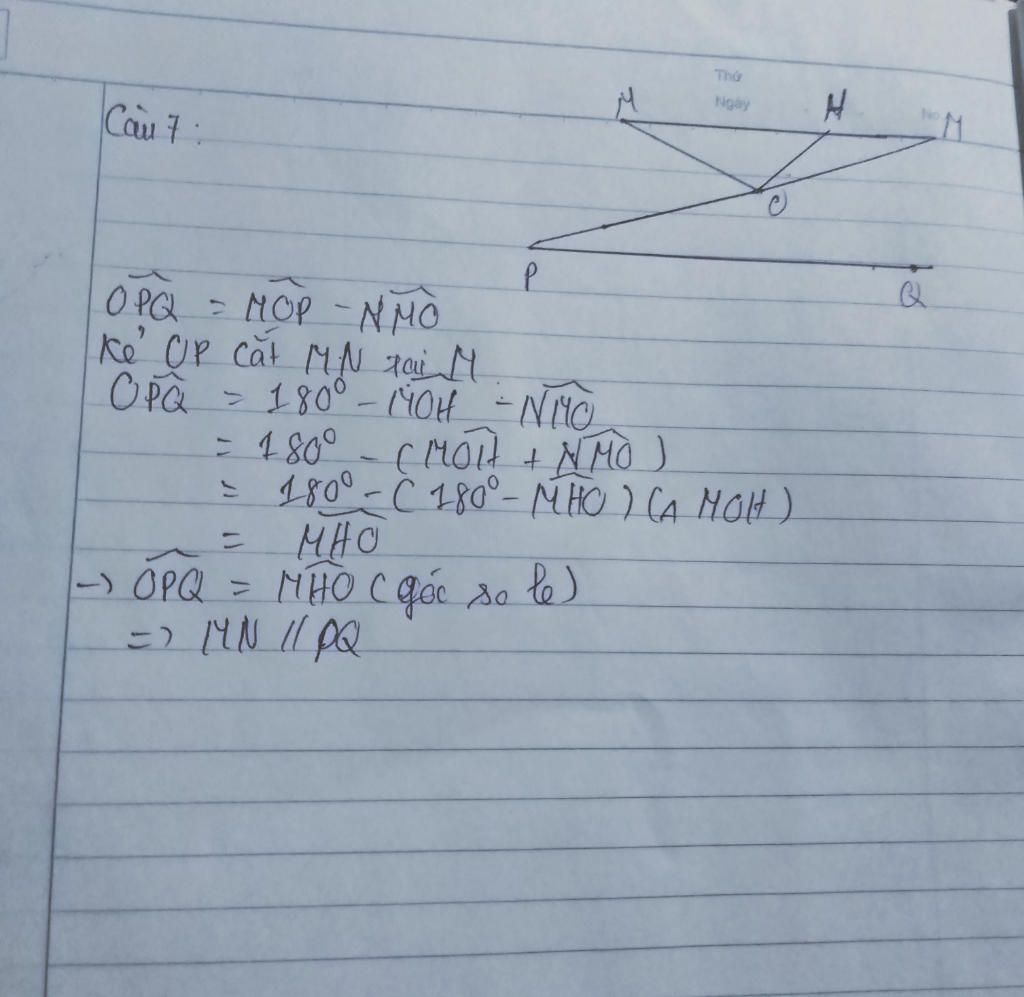 Thứ
Ngày
No
Câu 7:
M H M
O
P Q
OPQ = MOP - NMO
Kẻ OP cắt MN tại M
OPQ = 180° - MOH - NMO
= 180° - (MOH + NMO)
= 180° - (180° - MHO) (Δ MOH)
= MHO
-> OPQ = MHO (góc so le)
=> MN // PQ